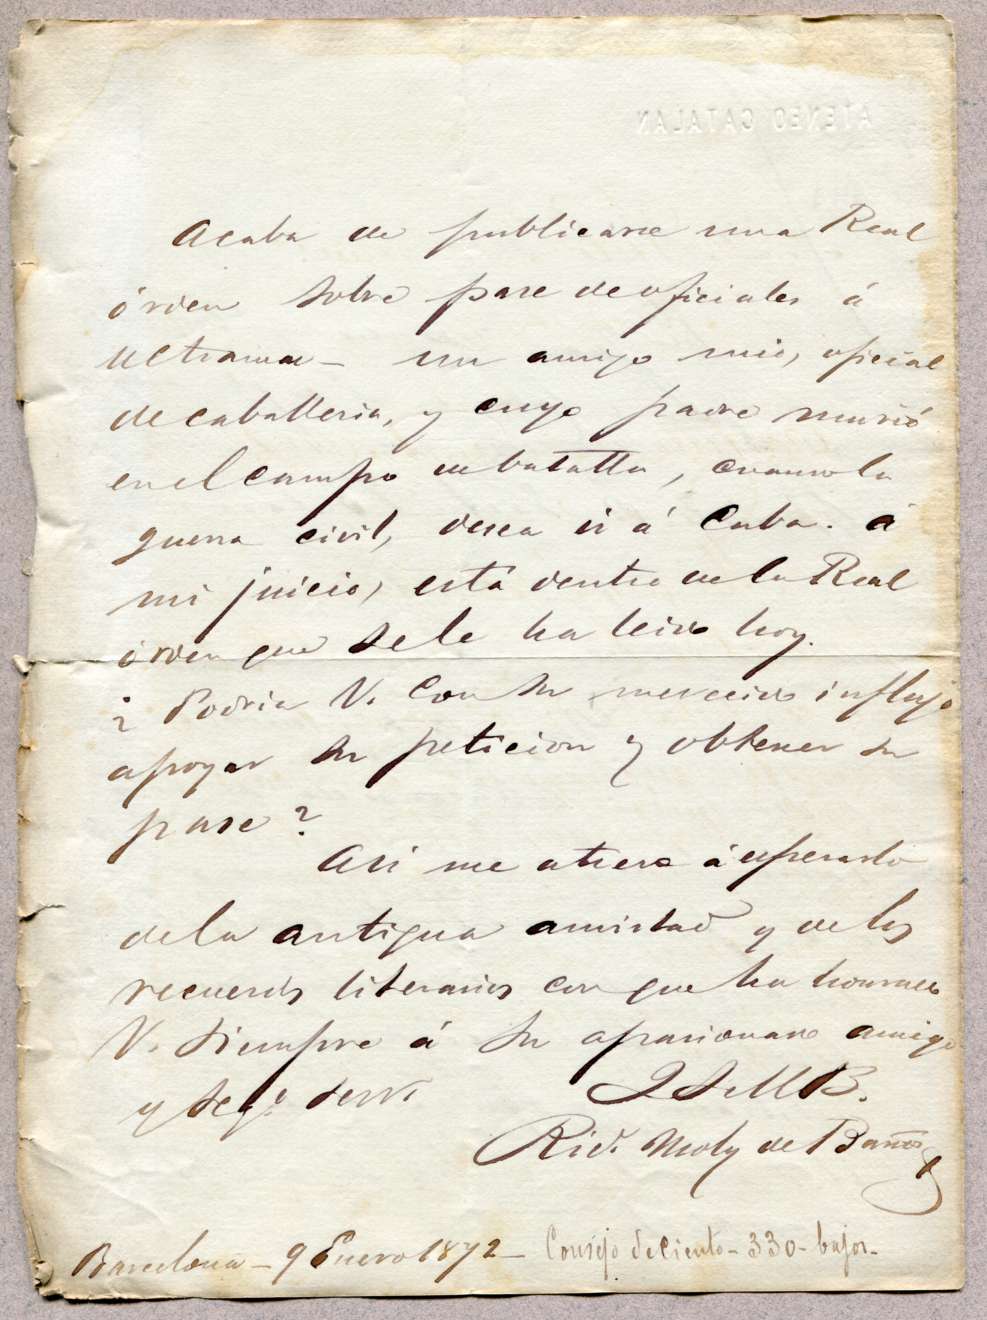 ATENEO CATALAN
Acaba de publicarse una Real
órden sobre pase de oficiales á
Ultramar — un amigo mio, oficial
de caballeria, y cuyo padre murió
en el campo de batalla, cuando la
guerra civil, desea ir á Cuba. á
mi juicio, está dentro de la Real
órden que se le ha leido hoy.
¿Podria V. con su merecido influjo
apoyar su peticion y obtener su
pase?
Asi me atrevo á esperarlo
de la antigua amistad y de los
recuerdos literarios con que ha honrado
V. siempre á su apasionado amigo
y seg.º serv.r Q S M B.
Ric.do Moly de Baños
Barcelona — 9 Enero 1872 — Consejo de Ciento — 330 — bajos —